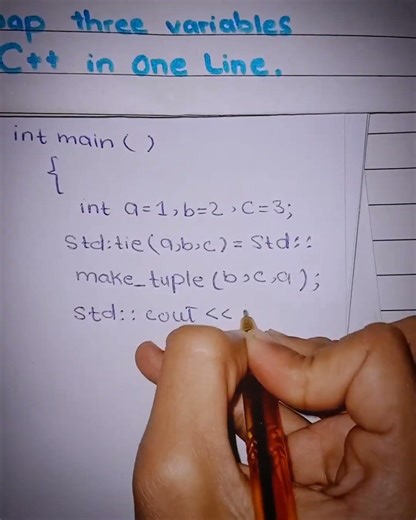 three variables
C++ in one Line.
int main ( )
{
int a=1,b=2,c=3;
Std:tie(a,b,c)=Std::
make_tuple(b,c,a);
Std:: cout <<